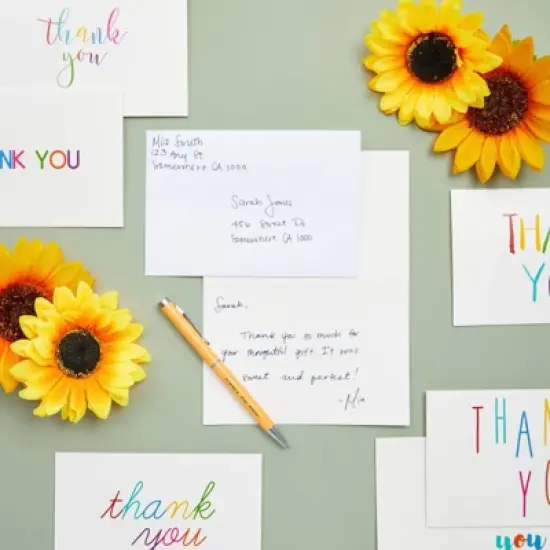 thank
you
NK YOU
Mia Smith
123 Any St
Somewhere CA 1000
Sarah Jones
456 Street Dr
Somewhere CA 1000
THA
Y
Sarah,
Thank you so much for
your thoughtful gift. It was
sweet and perfect!
-Mia
THAN
YO
thank
you
you